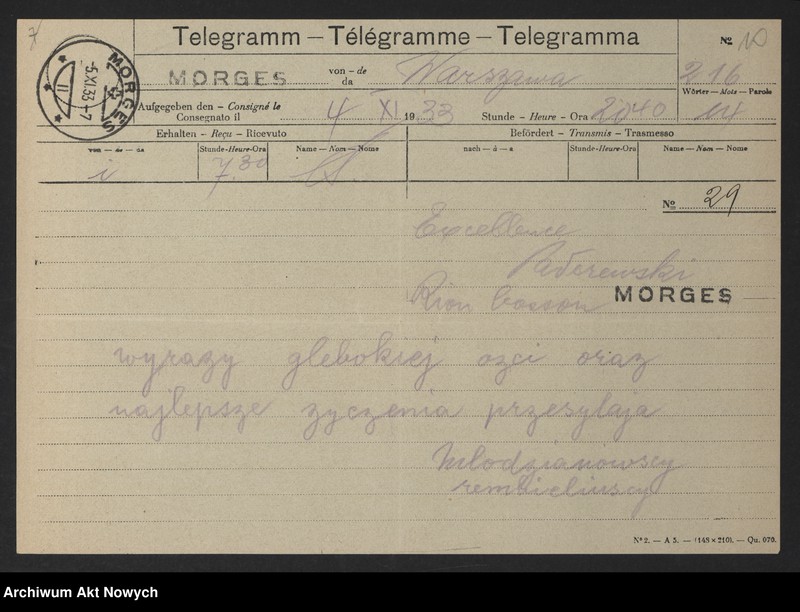 7
Telegramm – Télégramme – Telegramma
Nº 10
MORGES
-5.XI.33-7
II
MORGES von - de da Warszawa 216
Wörter - Mots - Parole
Aufgegeben den - Consigné le
Consegnato il 4 XI 1933 Stunde - Heure - Ora 2040 14
Erhalten - Reçu - Ricevuto Befördert - Transmis - Trasmesso
von - de - da Stunde-Heure-Ora Name - Nom - Nome nach - à - a Stunde-Heure-Ora Name - Nom - Nome
i 7.30
Nº 29
Excellence
Paderewski
Rion bosson MORGES
wyrazy glebokiej czci oraz
najlepsze zyczenia przesylaja
Mlodzianowscy
rembielinscy
Nº 2. — A 5. — (148 × 210). — Qu. 070.
Archiwum Akt Nowych